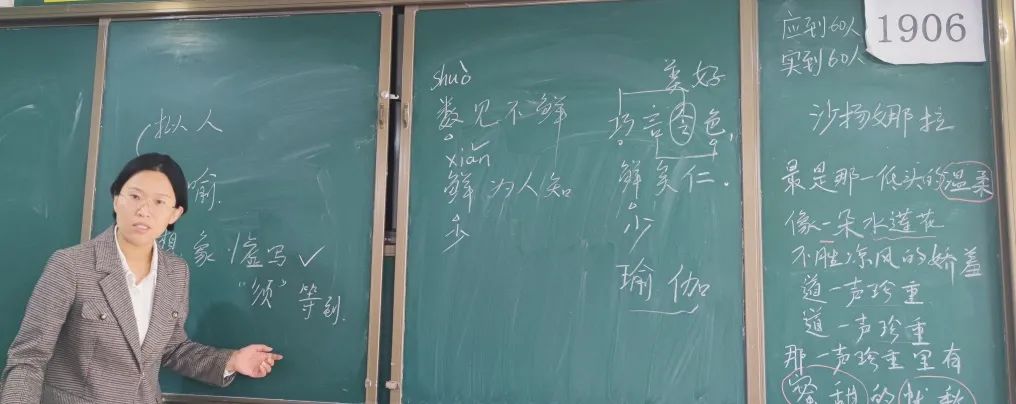 拟人
喻
想象 虚写 ✓
"须"等到.
shuò
数见不鲜
xiǎn
鲜为人知
少
美好
巧言令色,
鲜矣仁.
少
瑜伽
应到60人
实到60人
1906
沙扬娜拉
最是那一低头的温柔
像一朵水莲花
不胜凉风的娇羞
道一声珍重
道一声珍重
那一声珍重里有
蜜甜的忧愁